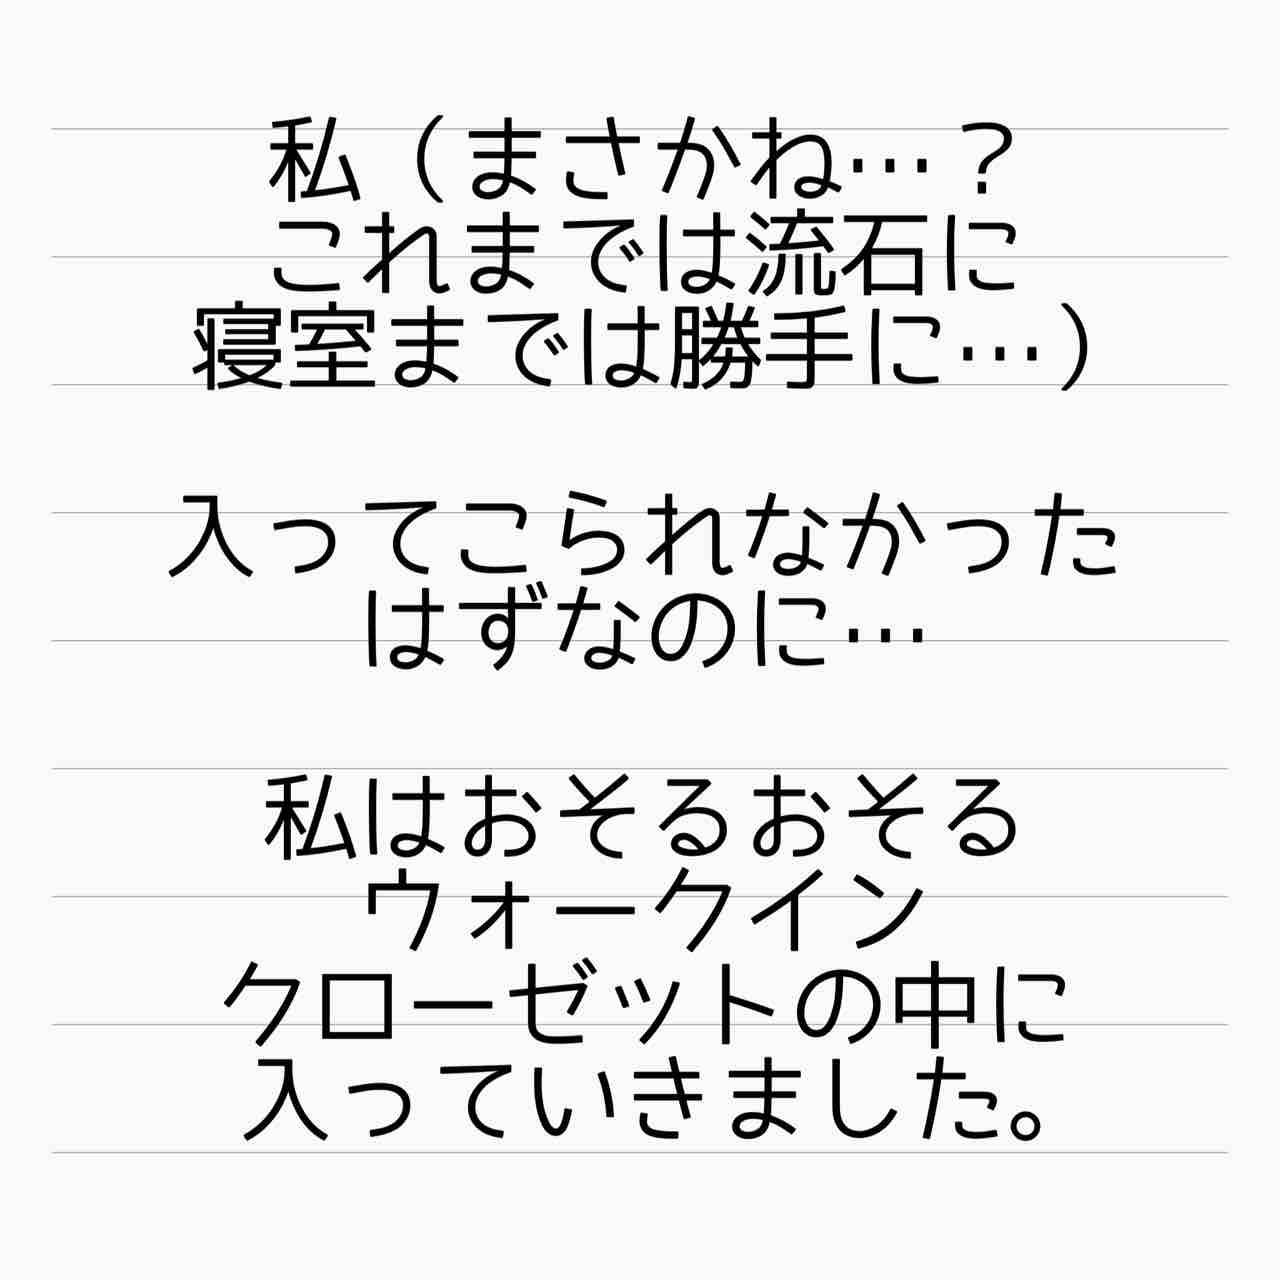 私（まさかね…？
これまでは流石に
寝室までは勝手に…）
入ってこられなかった
はずなのに…
私はおそるおそる
ウォークイン
クローゼットの中に
入っていきました。